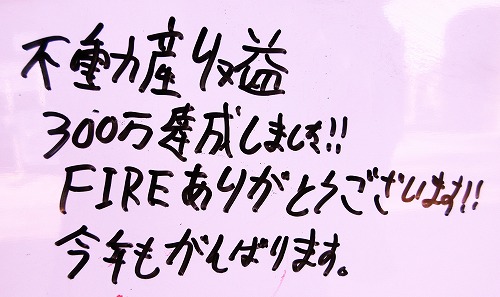 不動産収益
300万達成しました!!
FIREありがとうございます!!
今年もがんばります。